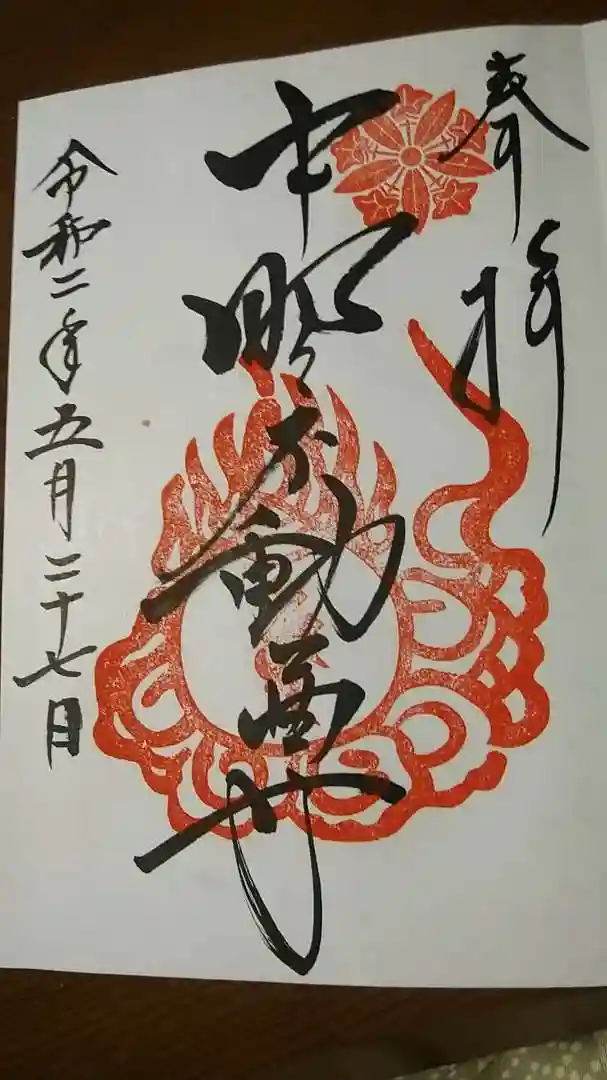 奉拝
中野不動尊
令和二年五月二十七日